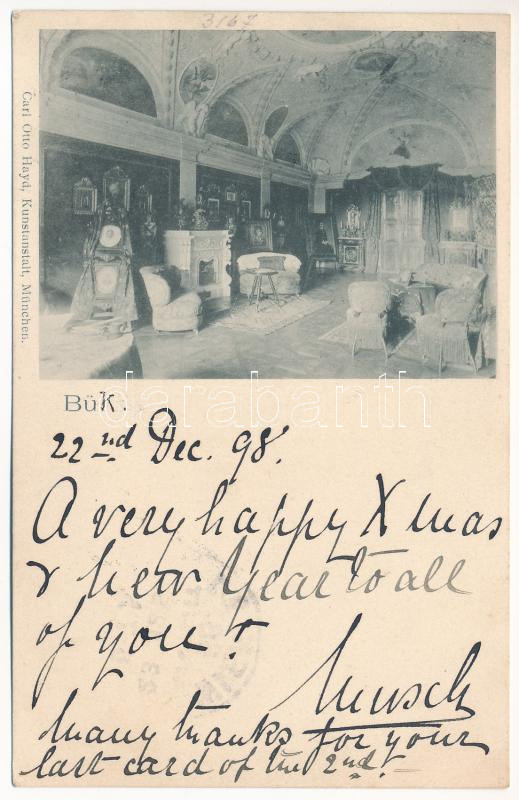 3167
Carl Otto Hayd, Kunstanstalt, München.
BüK.
darabanth
22nd Dec. 98.
A very happy Xmas
& New Year to all
of you!
Musch
Many thanks for your
last card of the 2nd.